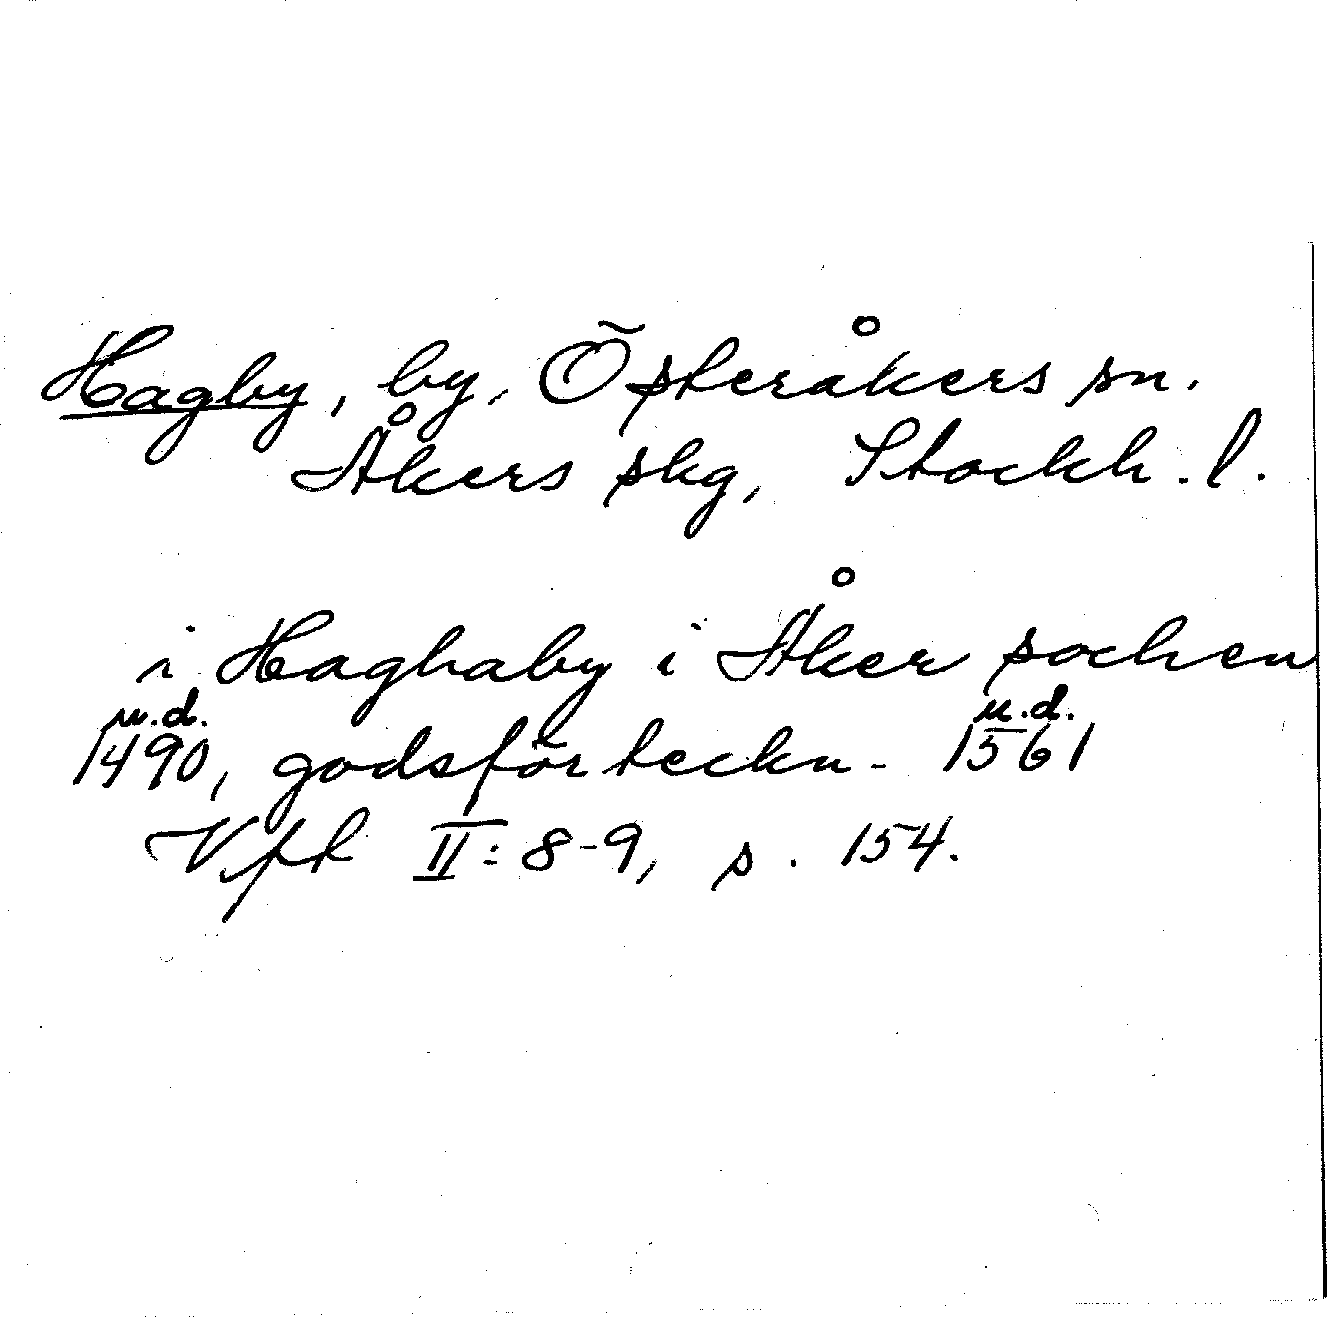 Hagby, by, Österåkers sn.
Åkers skg, Stockh. l.
i Haghaby i Åker sochen
u.d. u.d.
1490, godsförteckn. 1561
Vfk II: 8-9, s. 154.